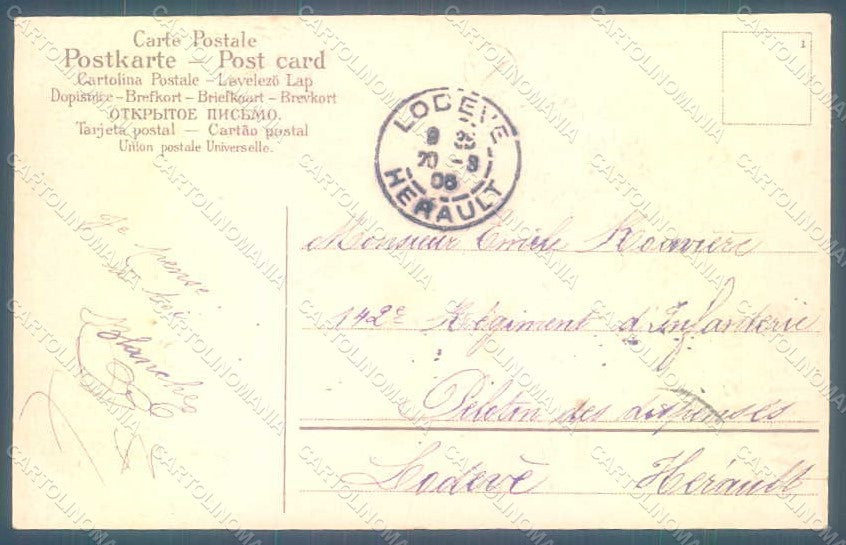 Carte Postale
Postkarte – Post card
Cartolina Postale – Levelező Lap
Dopisnice – Brefkort – Briefkaart – Brevkort
ОТКРЫТОЕ ПИСЬМО.
Tarjeta postal – Cartão postal
Union postale Universelle.
1
LODEVE
9
20 9
06
HERAULT
Je pense
à toi
Blanche
Monsieur Emile Rouvière
142e Régiment d'Infanterie
Peloton des Dispensés
Lodève Hérault
CARTOLINOMANIA